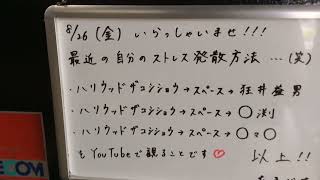 8/26 (金) いらっしゃいませ!!!
最近の自分のストレス発散方法 …(笑)
・ハリウッドザコシショウ→スペース→狂井益男
・ハリウッドザコシショウ→スペース→〇渕
・ハリウッドザコシショウ→スペース→〇マ〇
をYouTubeで観ることです♡
以上!!
ECOM